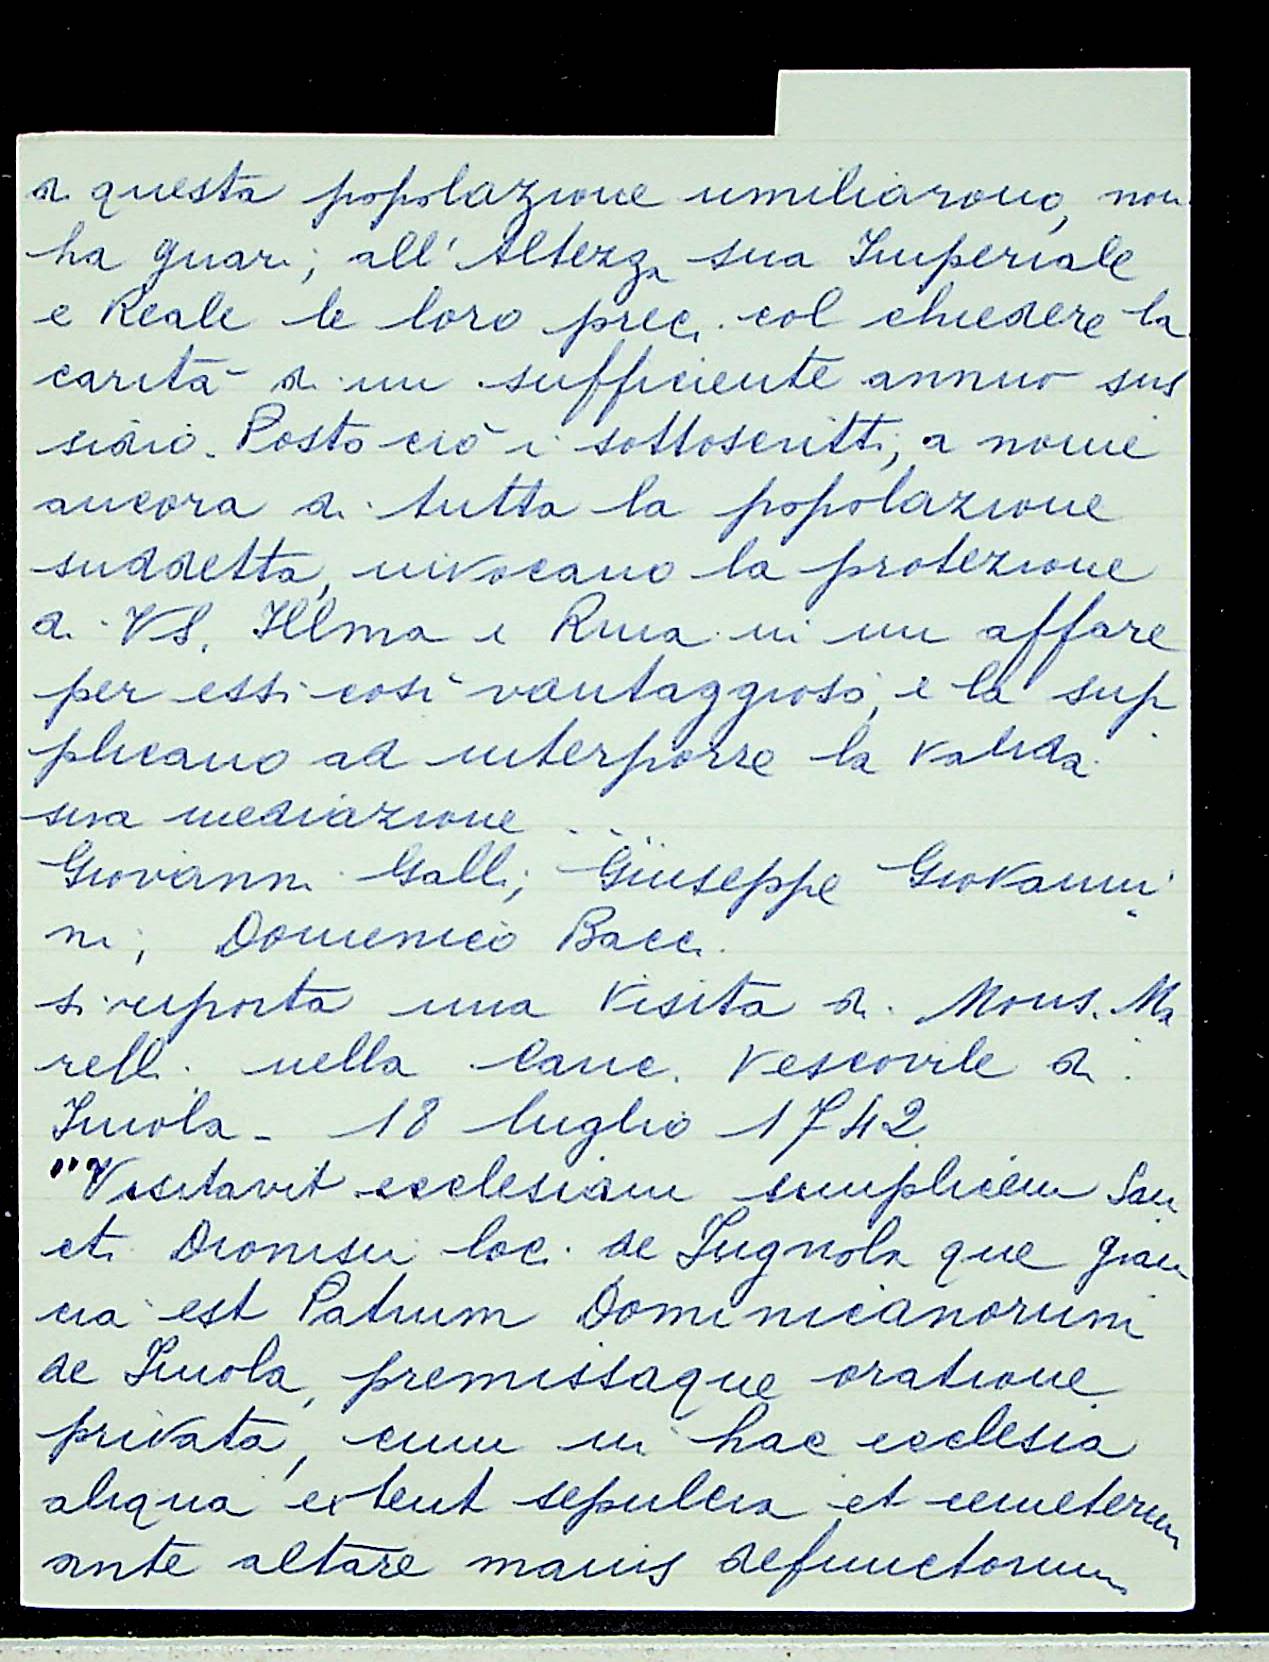 di questa popolazione umiliarono, non
ha guari, all'Altezza sua Imperiale
e Reale le loro preci col chiedere la
carità di un sufficiente annuo sus
sidio. Posto ciò i sottoscritti, a nome
ancora di tutta la popolazione
suddetta, invocano la protezione
di VS. Illma e Rma in un affare
per essi così vantaggioso, e la sup
plicano ad interporre la valida
sua mediazione ...
Giovanni Galli; Giuseppe Giovanni
ni; Domenico Bacci.
si riporta una visita di Mons. Ma
relli nella Canc. Vescovile di
Imola - 18 luglio 1742
"Visitavit ecclesiam simplicem San
cti Dionisii loci de Lugnola que gran
cia est Patrum Dominicanorum
de Imola, premissaque oratione
privata, cum in hac ecclesia
aliqua extent sepulcra et cemeterium
ante altare maius defunctorum